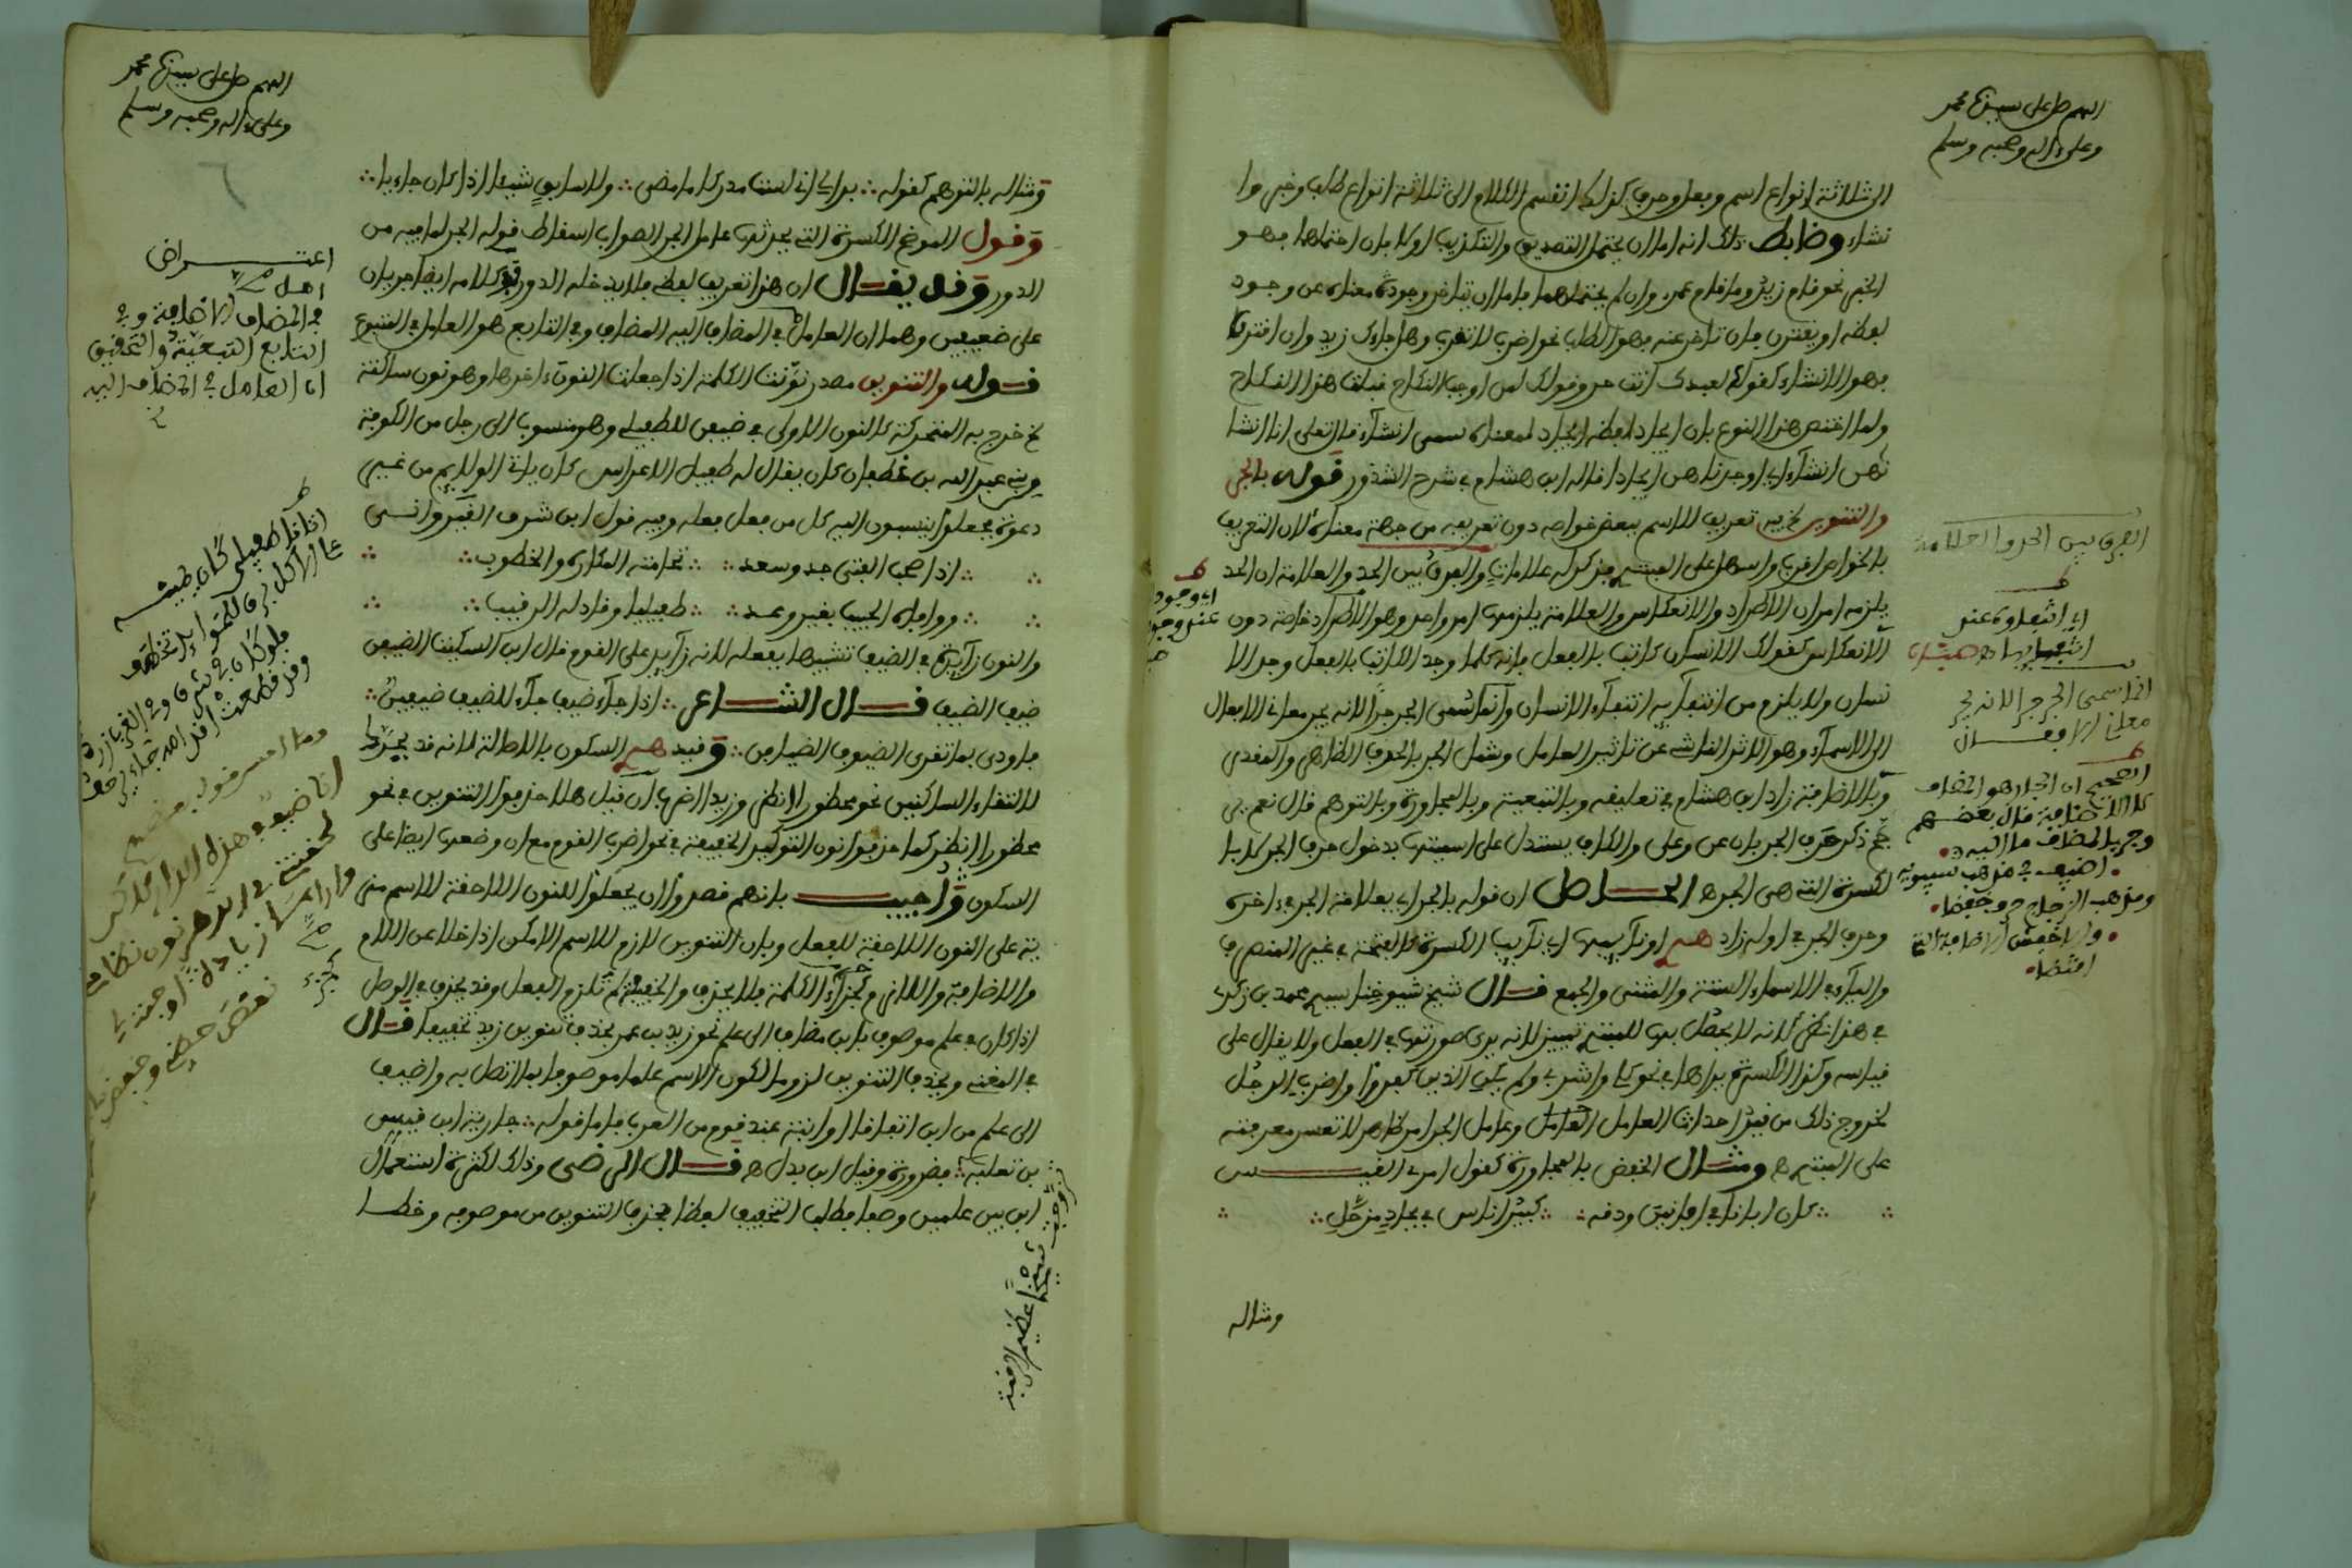 اللهم صل على سيدنا محمد
وعلى ءاله وصحبه وسلم
الى ثلاثة انواع اسم وفعل وحرف كذلك انقسم الكلام الى ثلاثة انواع طلب وخبر وا
نشاء وضابط ذلك انه اما ان يحتمل التصديق والتكذيب اولا فان احتملهما فهو
الخبر نحو قام زيد وما قام عمرو وان لم يحتملهما فاما ان يتاخر وجود معناه عن وجود
لفظه او يقترن فان تاخر عنه فهو الطلب نحو اضرب لا تضرب وهل جاءك زيد وان اقترنا
فهو الانشاء كقولك لعبدك انت حر وقولك لمن اوجب النكاح قبلت هذا النكاح
ولما اختص هذا النوع بان ايجاد لفظه ايجاد لمعناه سمى انشاء قال تعلى انا انشا
نهن انشاء اي اوجدناهن ايجادا قاله ابن هشام في شرح الشذور قوله بالجر
والتنوين تعريف للاسم ببعض خواصه دون تعريفه من جهة معناه لان التعريف
بالخواص اقرب واسهل على المبتدي فذكر له علامات والفرق بين الحد والعلامة ان الحد
يلزمه امران الاطراد والانعكاس والعلامة يلزمها امر واحد وهو الاطراد خاصة دون
الانعكاس كقولك الانسان كاتب بالفعل فانه كلما وجد الكاتب بالفعل وجد الا
نسان ولا يلزم من انتفائه انتفاء الانسان وانما سمى الجر جرا لانه يجر معاني الافعال
الى الاسماء وهو الاثر الناشئ عن تاثير العامل وشمل الجر بالحرف الظاهر والمقدر
وبالاضافة زاد ابن هشام في تعليقه وبالتبعية وبالمجاورة وبالتوهم قال نعم يرد
ذكر حرف الجر بان عن وعلى والكاف يستدل على اسميتها بدخول حرف الجر لا با
لكسرة التي هي الجر ه الحاصل ان قوله بالجر اي بعلامة الجر في اخره
وحرف الجر في اوله زاد او نائبها اي نائب الكسرة كالفتحة في غير المنصرف
والياء في الاسماء الستة والمثنى والجمع قال شيخ شيوخنا سيدي محمد بن زكري
في هذا نظر لانه لا يحصل بها للمبتدي تمييز لانه يرى صورتها في الفعل ولا يقال على
قياسه وكذا الكسرة يراها في نحو كلي واشربي ولم يكن الذين كفروا واضرب الرجل
لخروج ذلك من قيد احداث العامل لان العامل وعامل الجر امر ظاهر لا تعسر معرفته
على المبتدي ه ومثال الخفض بالمجاورة كقول امرئ القيس
كان ابانا في افانين ودقه كبير اناس في بجاد مزمل
ومثاله
الفرق بين الحد والعلامة
اي انتفاؤه عند
انتفايها ه هشام
انما سمى الجر جر الانه يجر
معاني الافعال
الصحيح ان الجار هو المضاف
لا الاضافة قال بعضهم
وجر بالمضاف ما اليه
اضيف في مذهب سيبويه
ومذهب الزجاج حرف خفضا
والاخفش الاضافة التي
اقتضا
اي وجوده
عند وجود
اللهم صل على سيدنا محمد
وعلى ءاله وصحبه وسلم
٦
ومثاله بالتوهم كقوله بدا لي اني لست مدرك ما مضى ولا سابق شيئا اذا كان جائيا
وقول الموضح الكسرة التي يحدثها عامل الجر الصواب اسقاط قوله الجر لما فيه من
الدور وقد يقال ان هذا تعريف لفظي فلا يدخله الدور كلامه ايضا جر بان
على ضعيفين وهما ان العامل في المضاف اليه المضاف وفي التابع هو العامل في المتبوع
قوله والتنوين مصدر نونت الكلمة اذا جعلت النون ءاخرها وهو نون ساكنة
خرج به المتحركة كالنون الاولى في ضيفن للطفيلي وهو منسوب الى رجل من الكوفة
من بني عبد الله بن غطفان كان يقال له طفيل الاعراس كان ياتي الولايم من غير
دعوة فجعلوا ينسبون اليه كل من يفعل فعله وفيه قول ابن شرف القيرواني
اذا صحب الفتى جد وسعد تحامته المكاره والخطوب
ووافاه الحبيب بغير وعد طفيليا وقاد له الرقيب
والنون زائدة في الضيف تشبيها بفعله لانه زائد على القوم قال ابن السكيت الضيفن
ضيف الضيف قال الشاعر اذا جاء ضيف جاء للضيف ضيفن
فاودى بما تقرى الضيوف الضيافن وقيد السكون بالاصالة لانه قد يحرك
لالتقاء الساكنين نحو محظورا انظر وزيدا اضرب ان قيل هلا حذفوا التنوين في نحو
محظورا انظر كما حذفوا نون التوكيد الخفيفة في نحو اضرب القوم مع ان وضعها ايضا على
السكون واجيب بانهم قصدوا ان يجعلوا للنون اللاحقة للاسم مز
ية على النون اللاحقة للفعل وبان التنوين لازم للاسم الامكن اذا خلا عن اللام
والاضافة واللازم كجزء الكلمة فلا يحذف والخفيفة لم تلزم الفعل وقد يحذف في الوصل
اذا كان في علم موصوف بابن مضاف الى علم نحو زيد بن عمر بحذف تنوين زيد تخفيفا قال
في المغني ويحذف التنوين لزوما لكون الاسم علما موصوفا بما اتصل به واضيف
الى علم من ابن اتفاقا او ابنة عند قوم من العرب فاما قوله جارية ابن قيس
بن ثعلبة فضرورة وقيل ابن بدل ه قال الرضى وذلك لكثرة استعمال
ابن بين علمين وصفا فطلب التخفيف لفظا بحذف التنوين من موصوفه وخطا
اعتراض
العامل
في المضاف الاضافة وفي
التابع التبعية والتحقيق
ان العامل في المضاف اليه